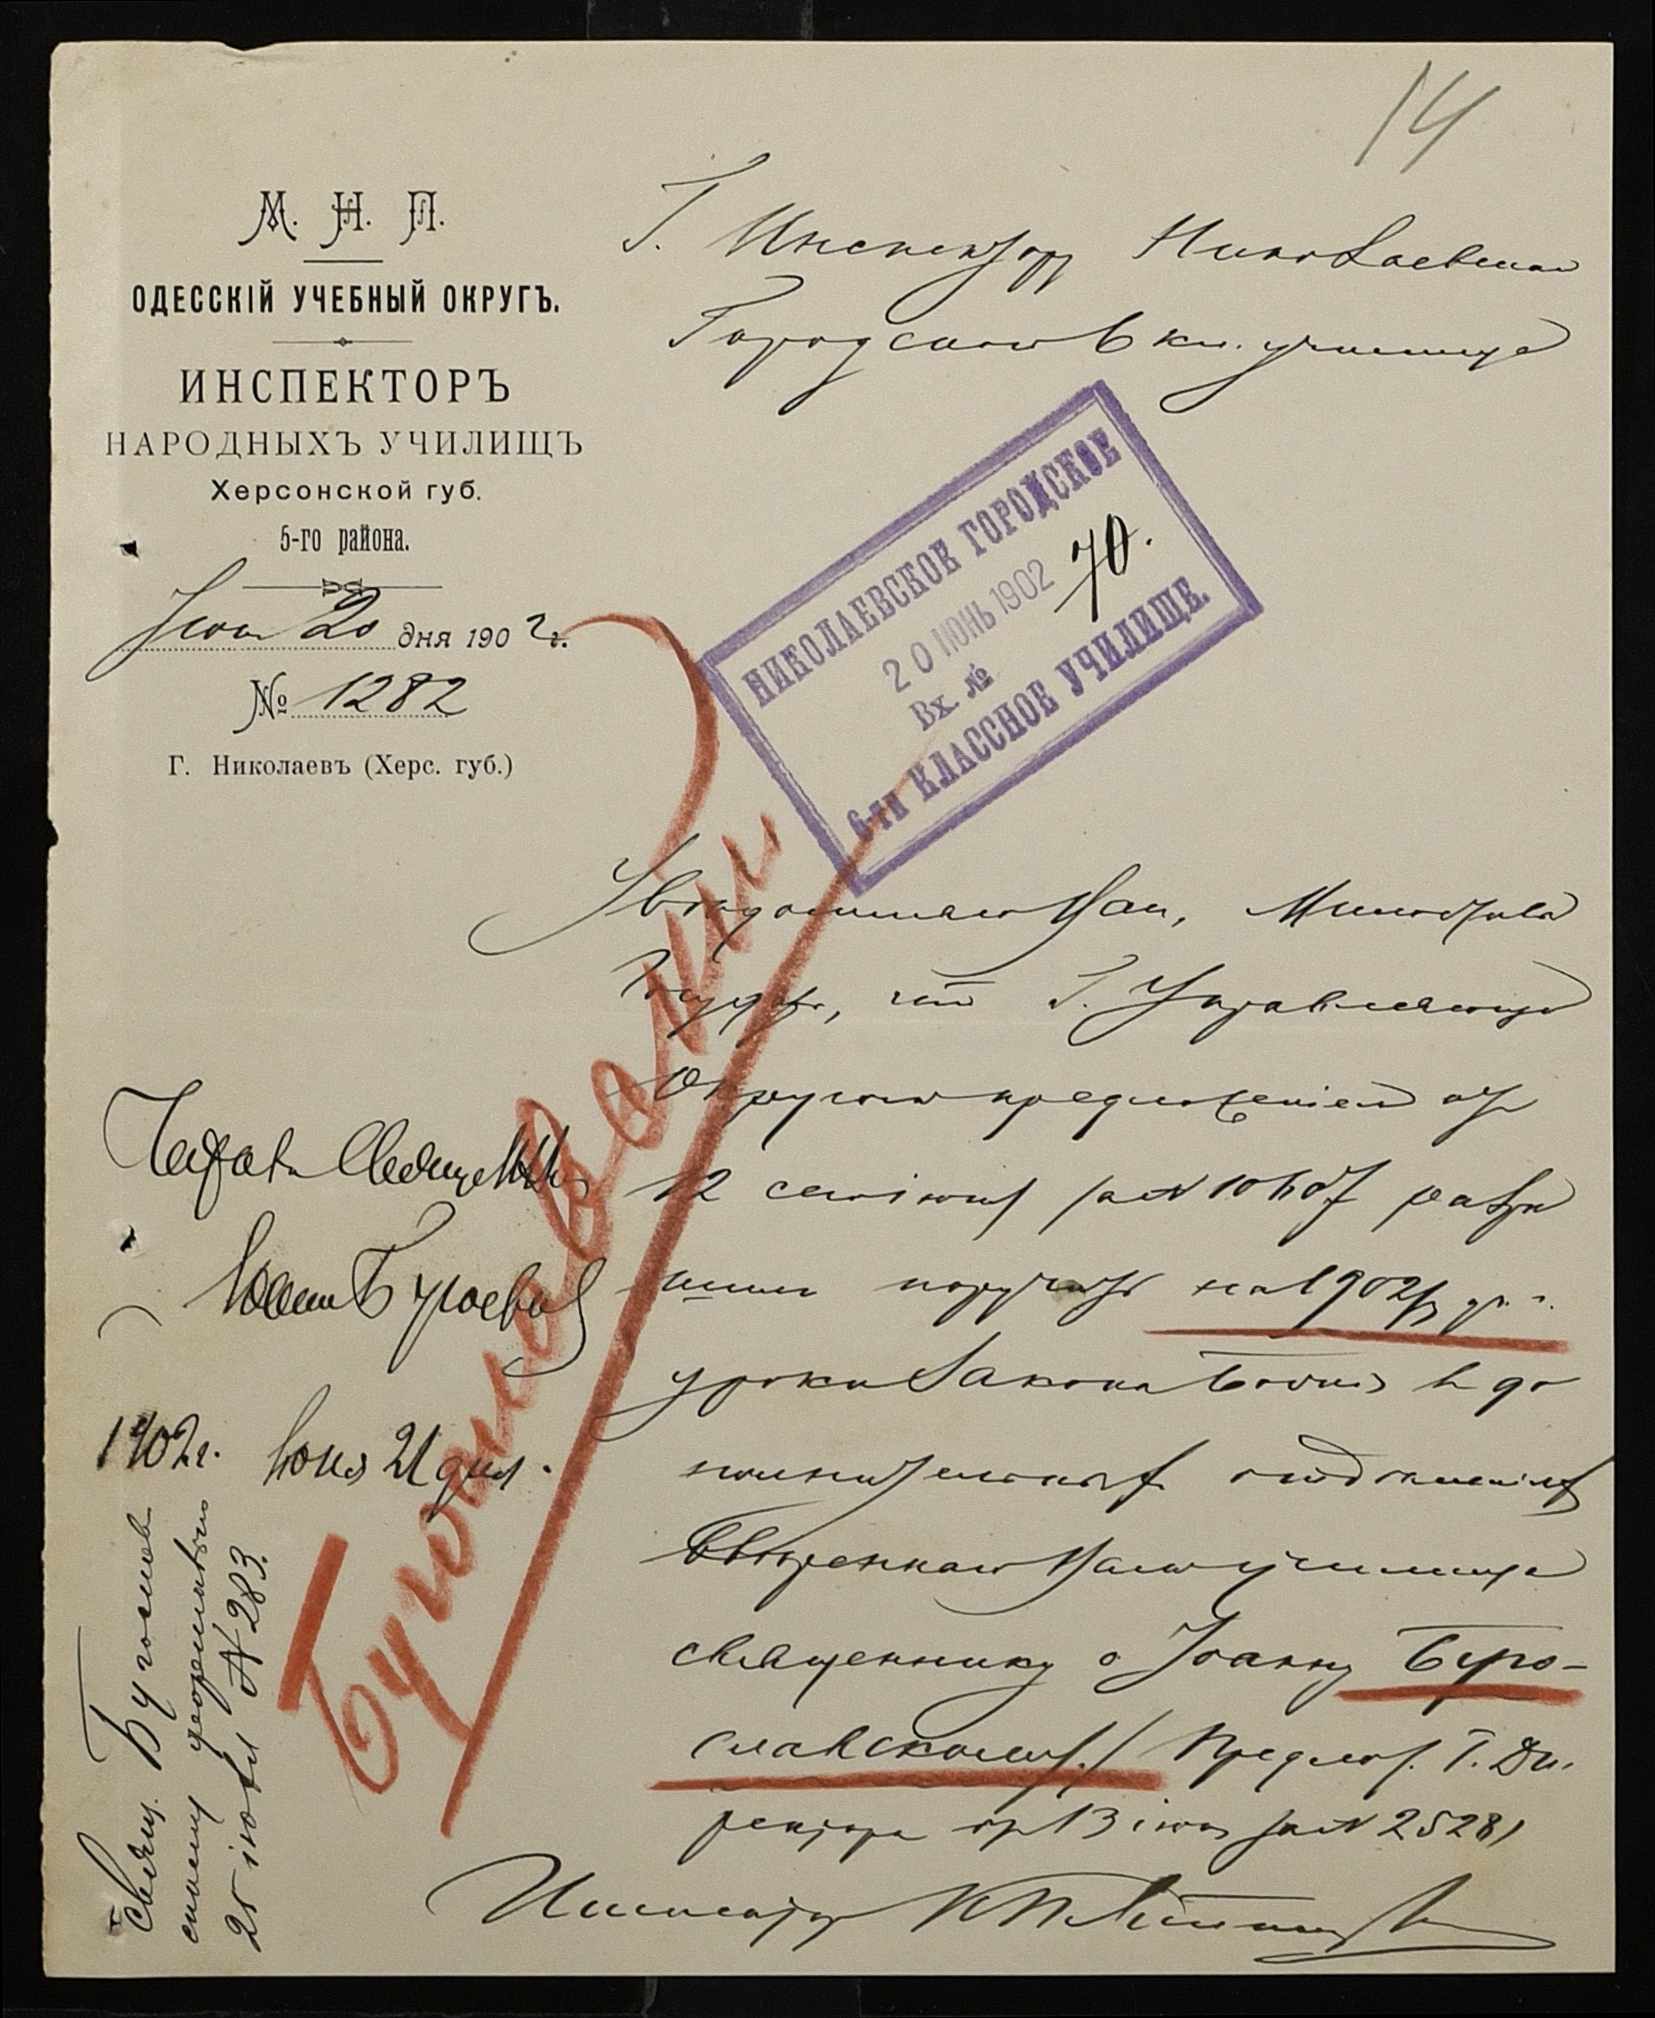 14
М. Н. П.
ОДЕССКІЙ УЧЕБНЫЙ ОКРУГЪ.
ИНСПЕКТОРЪ
НАРОДНЫХЪ УЧИЛИЩЪ
Херсонской губ.
5-го района.
Іюня 20 дня 1902 г.
№ 1282
Г. Николаевъ (Херс. губ.)
Г. Инспектору Николаевскаго
Городскаго 6 кл. училища
НИКОЛАЕВСКОЕ ГОРОДСКОЕ
20 ІЮНЬ 1902
Вх. № 70.
6-ти КЛАССНОЕ УЧИЛИЩЕ.
Увѣдомляю Васъ, Милостивый
Государь, что Г. Управляющій
Округомъ предложеніемъ отъ
12 сего іюня за №
поручить на 1902/3 уч. г.
уроки Закона Божія въ до
полнительномъ отдѣленіи
ввѣреннаго Вамъ училища
священнику о Іоанну Буго-
славскому. / Предлож. Г. Ди-
ректора отъ 13 іюня за № 2528/
Инспекторъ
Читалъ Священникъ
Іоаннъ
1902 г. Іюня 21 дня.
Свящ. Бугослав
скому
25 іюня № 283.